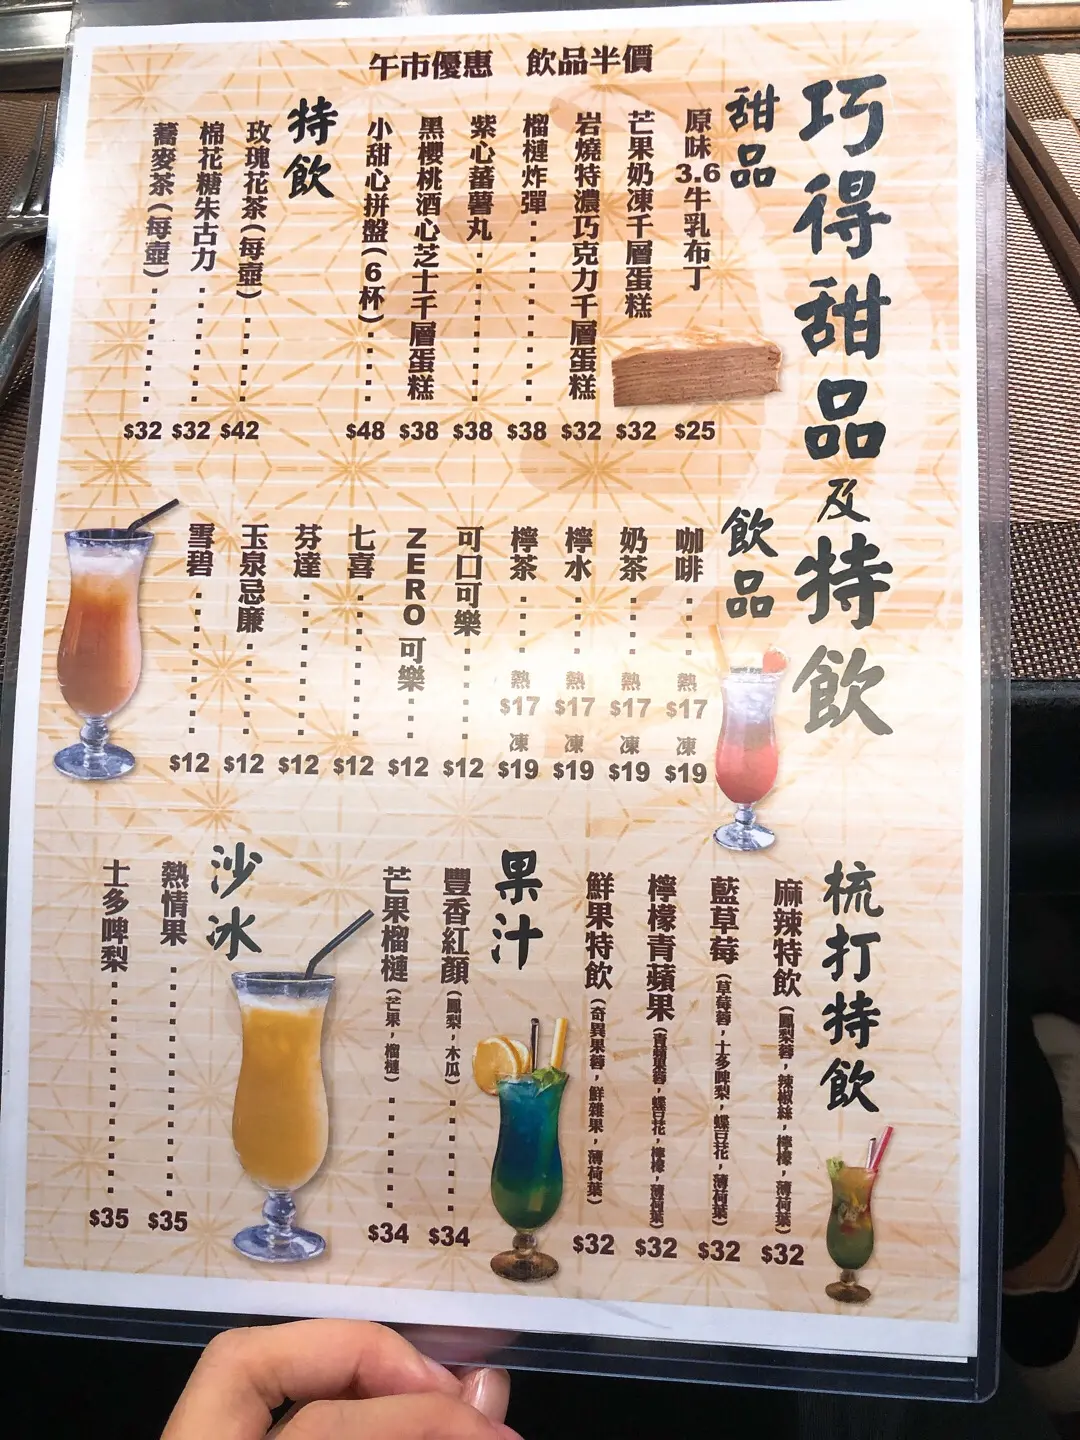 午市優惠　飲品半價
巧得甜品及特飲
甜品
原味3.6牛乳布丁 $25
芒果奶凍千層蛋糕 $32
岩燒特濃巧克力千層蛋糕 $32
榴槤炸彈 $38
紫心蕃薯丸 $38
黑櫻桃酒心芝士千層蛋糕 $38
小甜心拼盤(6杯) $48
特飲
玫瑰花茶(每壺) $42
棉花糖朱古力 $32
蕎麥茶(每壺) $32
飲品
咖啡 熱 $17 凍 $19
奶茶 熱 $17 凍 $19
檸水 熱 $17 凍 $19
檸茶 熱 $17 凍 $19
可口可樂 $12
ZERO可樂 $12
七喜 $12
芬達 $12
玉泉忌廉 $12
雪碧 $12
梳打特飲
麻辣特飲(鳳梨蓉,辣椒絲,檸檬,薄荷葉) $32
藍草莓(草莓蓉,士多啤梨,蝶豆花,薄荷葉) $32
檸檬青蘋果(青蘋果蓉,蝶豆花,檸檬,薄荷葉) $32
鮮果特飲(奇異果蓉,鮮雜果,薄荷葉) $32
果汁
豐香紅顏(鳳梨,木瓜) $34
芒果榴槤(芒果,榴槤) $34
沙冰
熱情果 $35
士多啤梨 $35